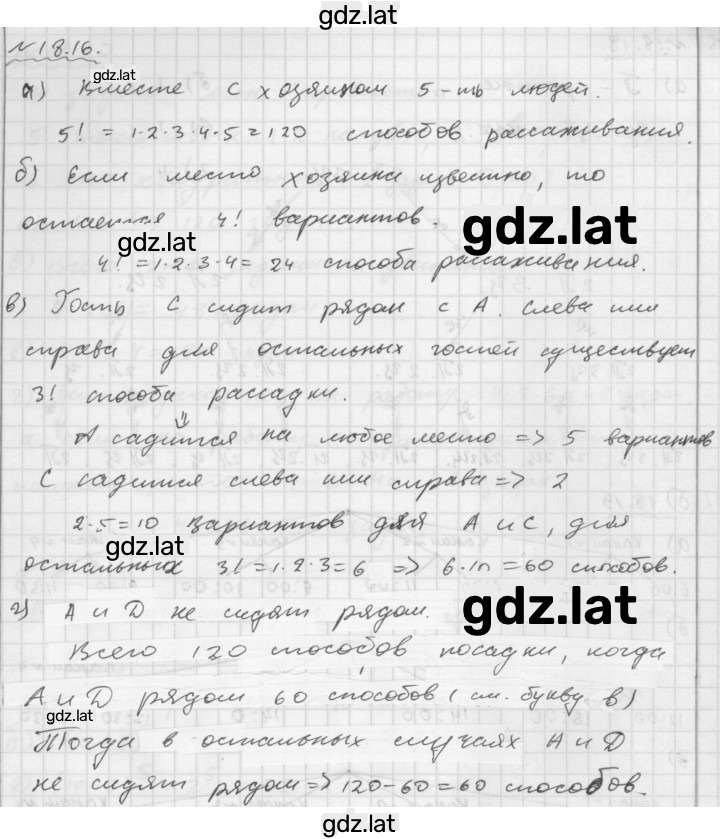 gdz.lat
№18.16.
gdz.lat
а) Вместе с хозяином 5-ть людей.
5! = 1·2·3·4·5 = 120 способов рассаживания.
б) Если место хозяина известно, то
остается 4! вариантов.
gdz.lat
gdz.lat
4! = 1·2·3·4 = 24 способа рассаживания.
в) Гость С сидит рядом с А. Слева или
справа для остальных гостей существует
3! способа рассадки.
⇓
А садится на любое место => 5 вариантов
С садится слева или справа => 2
2·5=10 вариантов для А и С, для
gdz.lat
остальных 3! = 1·2·3=6 => 6·10 = 60 способов.
gdz.lat
г) А и D не сидят рядом.
Всего 120 способов посадки, когда
А и D рядом 60 способов (см. букву в)
gdz.lat
Тогда в остальных случаях А и D
не сидят рядом => 120-60=60 способов.
gdz.lat